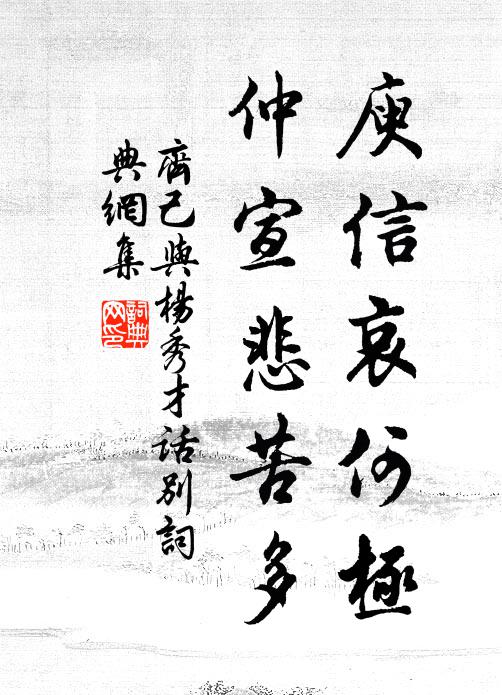 庾信哀何極
仲宣悲苦多
齊己與楊秀才話別詞
典網集
詞典
网印